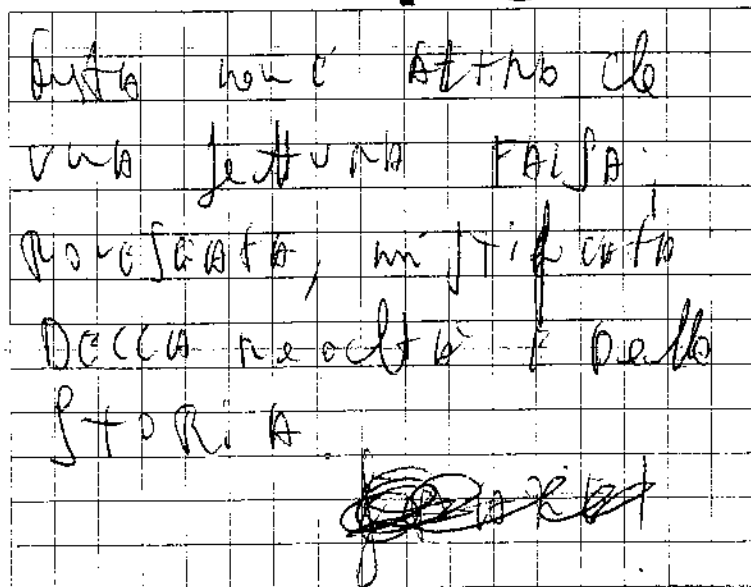 Questa non è Altro che
una lettura FALSA,
ROVESCIATA, mistificata
DELLA realtà e Della
STORIA.